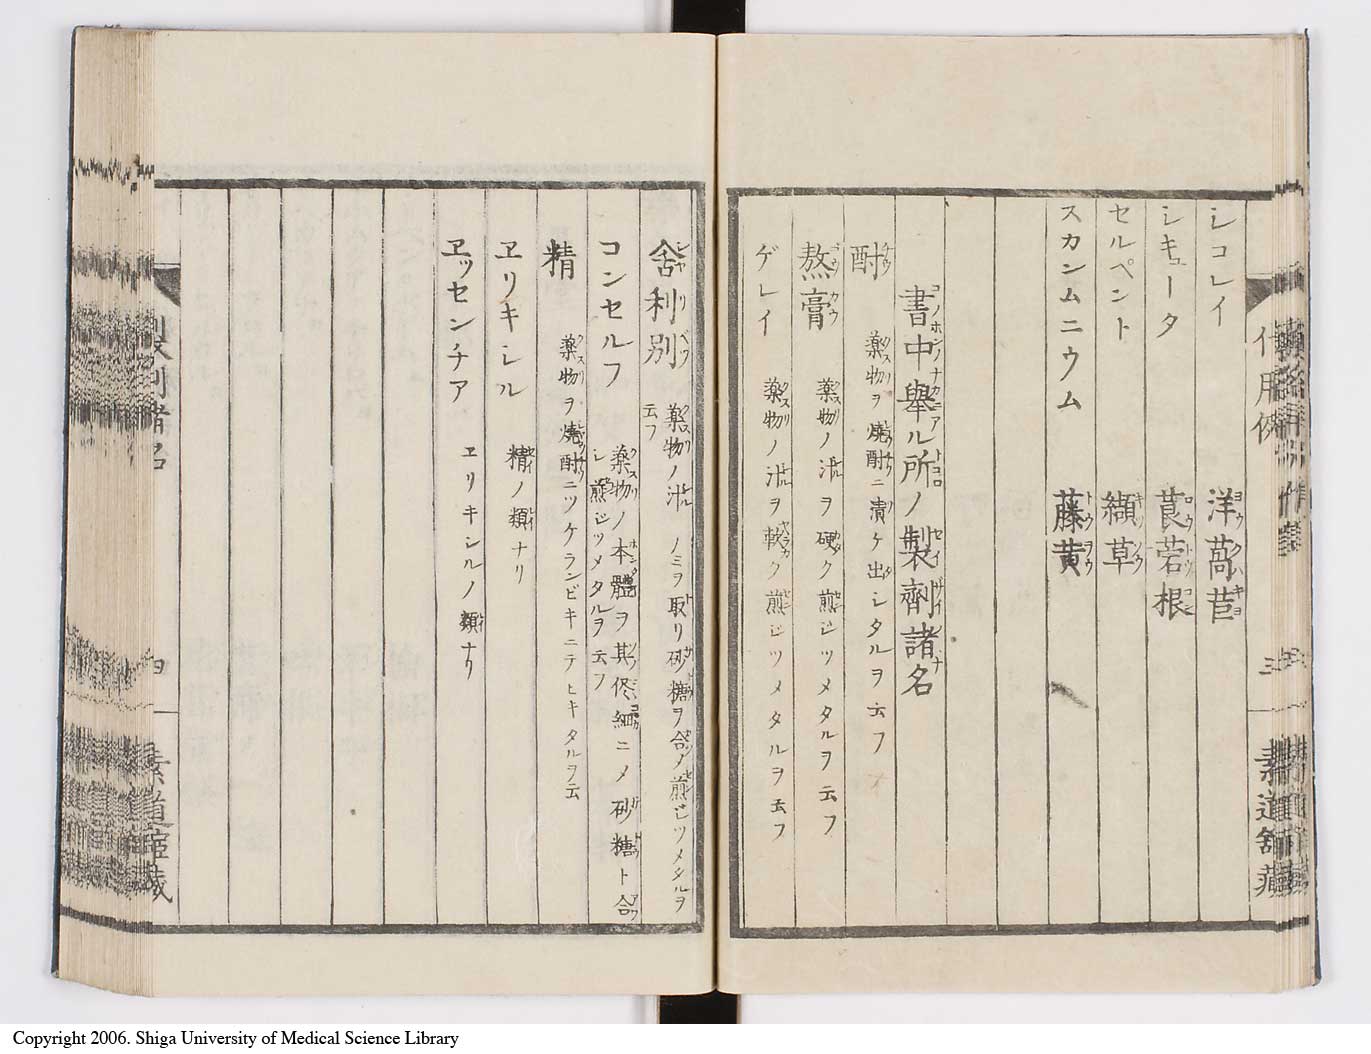 シコレイ 洋萵苣
シキュータ 莨菪根
セルペント 纈草
スカンムニウム 藤黄
書中擧ル所ノ製劑諸名
酎 薬物ヲ燒酎ニ漬ケ出シタルヲ云フ
熬膏 薬物ノ汁ヲ硬ク煎ジツメタルヲ云フ
ゲレイ 薬物ノ汁ヲ軟ク煎ジツメタルヲ云フ
三
素道舘藏
舍利別 薬物ノ汁ノミヲ取リ砂糖ヲ合ノ煎ジツメタルヲ
云フ
コンセルフ 薬物ノ本體ヲ其侭細ニメ砂糖ト合
シ煎ジツメタルヲ云フ
精 薬物ヲ燒酎ニツケランビキニテヒキタルヲ云
ヱリキシル 精ノ類ナリ
ヱッセンチア ヱリキシルノ類ナリ
四
素道舘藏
Copyright 2006. Shiga University of Medical Science Library